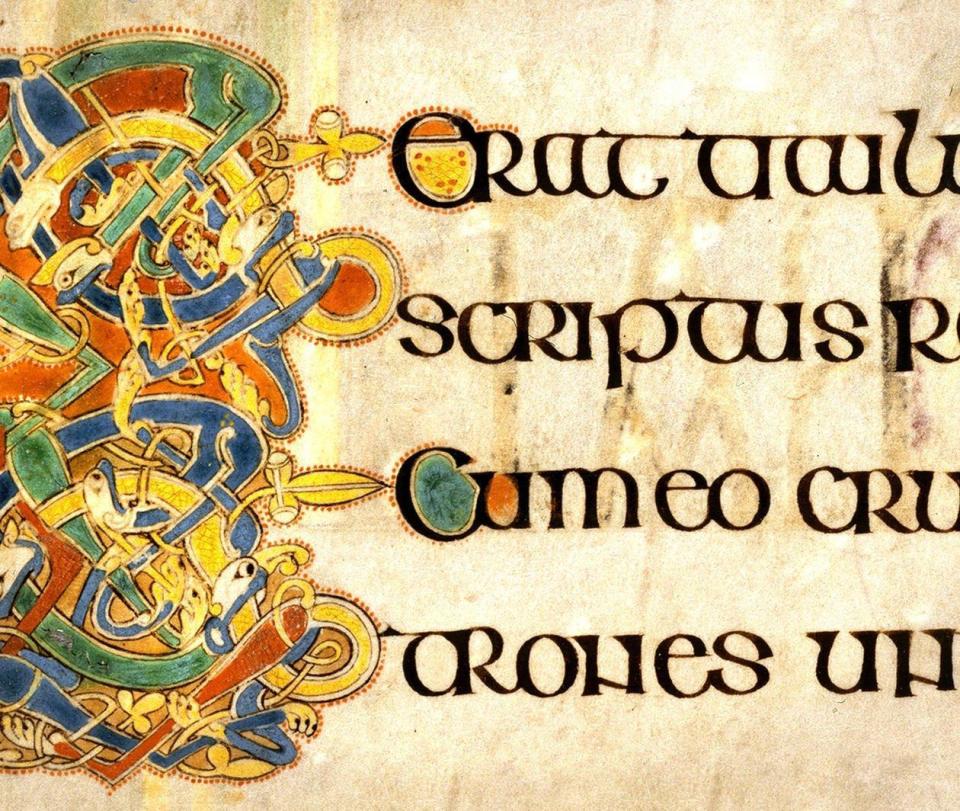 Erat titulu
scriptus re
Cum eo cru
trones un